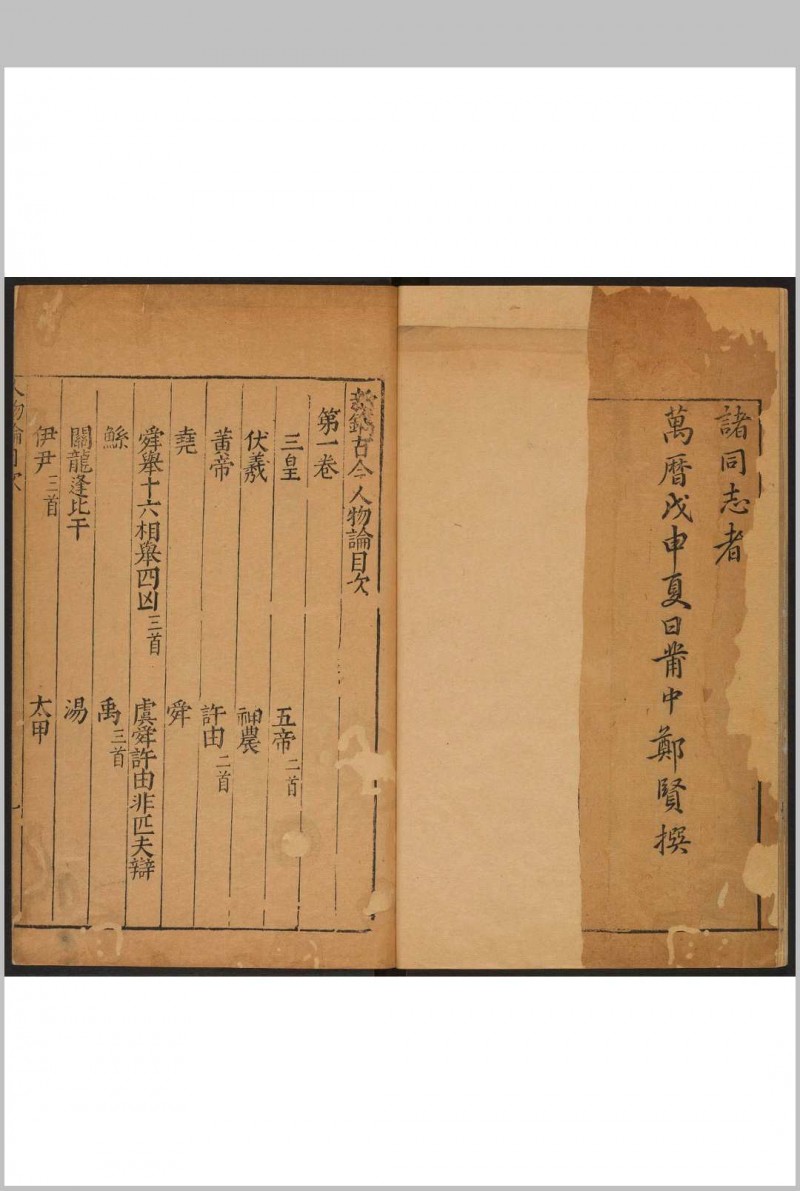 諸同志者
萬暦戊申夏日莆中鄭賢撰
古今人物論目次
第一卷
三皇 五帝二首
伏羲 神農
黃帝 許由二首
堯 舜
舜舉十六相舉四凶三首 虞舜許由非匹夫辯
鯀 禹三首
關龍逢比干 湯
伊尹三首 太甲
人物論目次